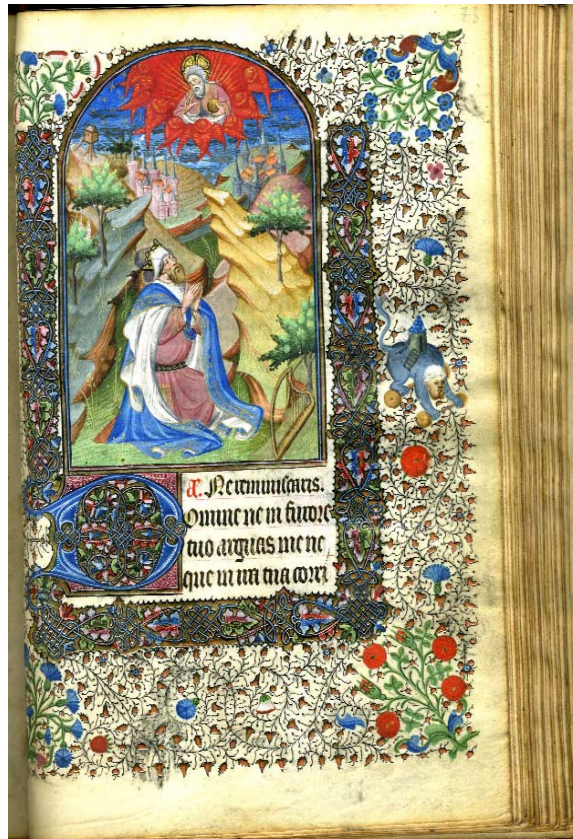 a. Ne reminiscaris.
Domine ne in furore
tuo arguas me ne
que in ira tua corri